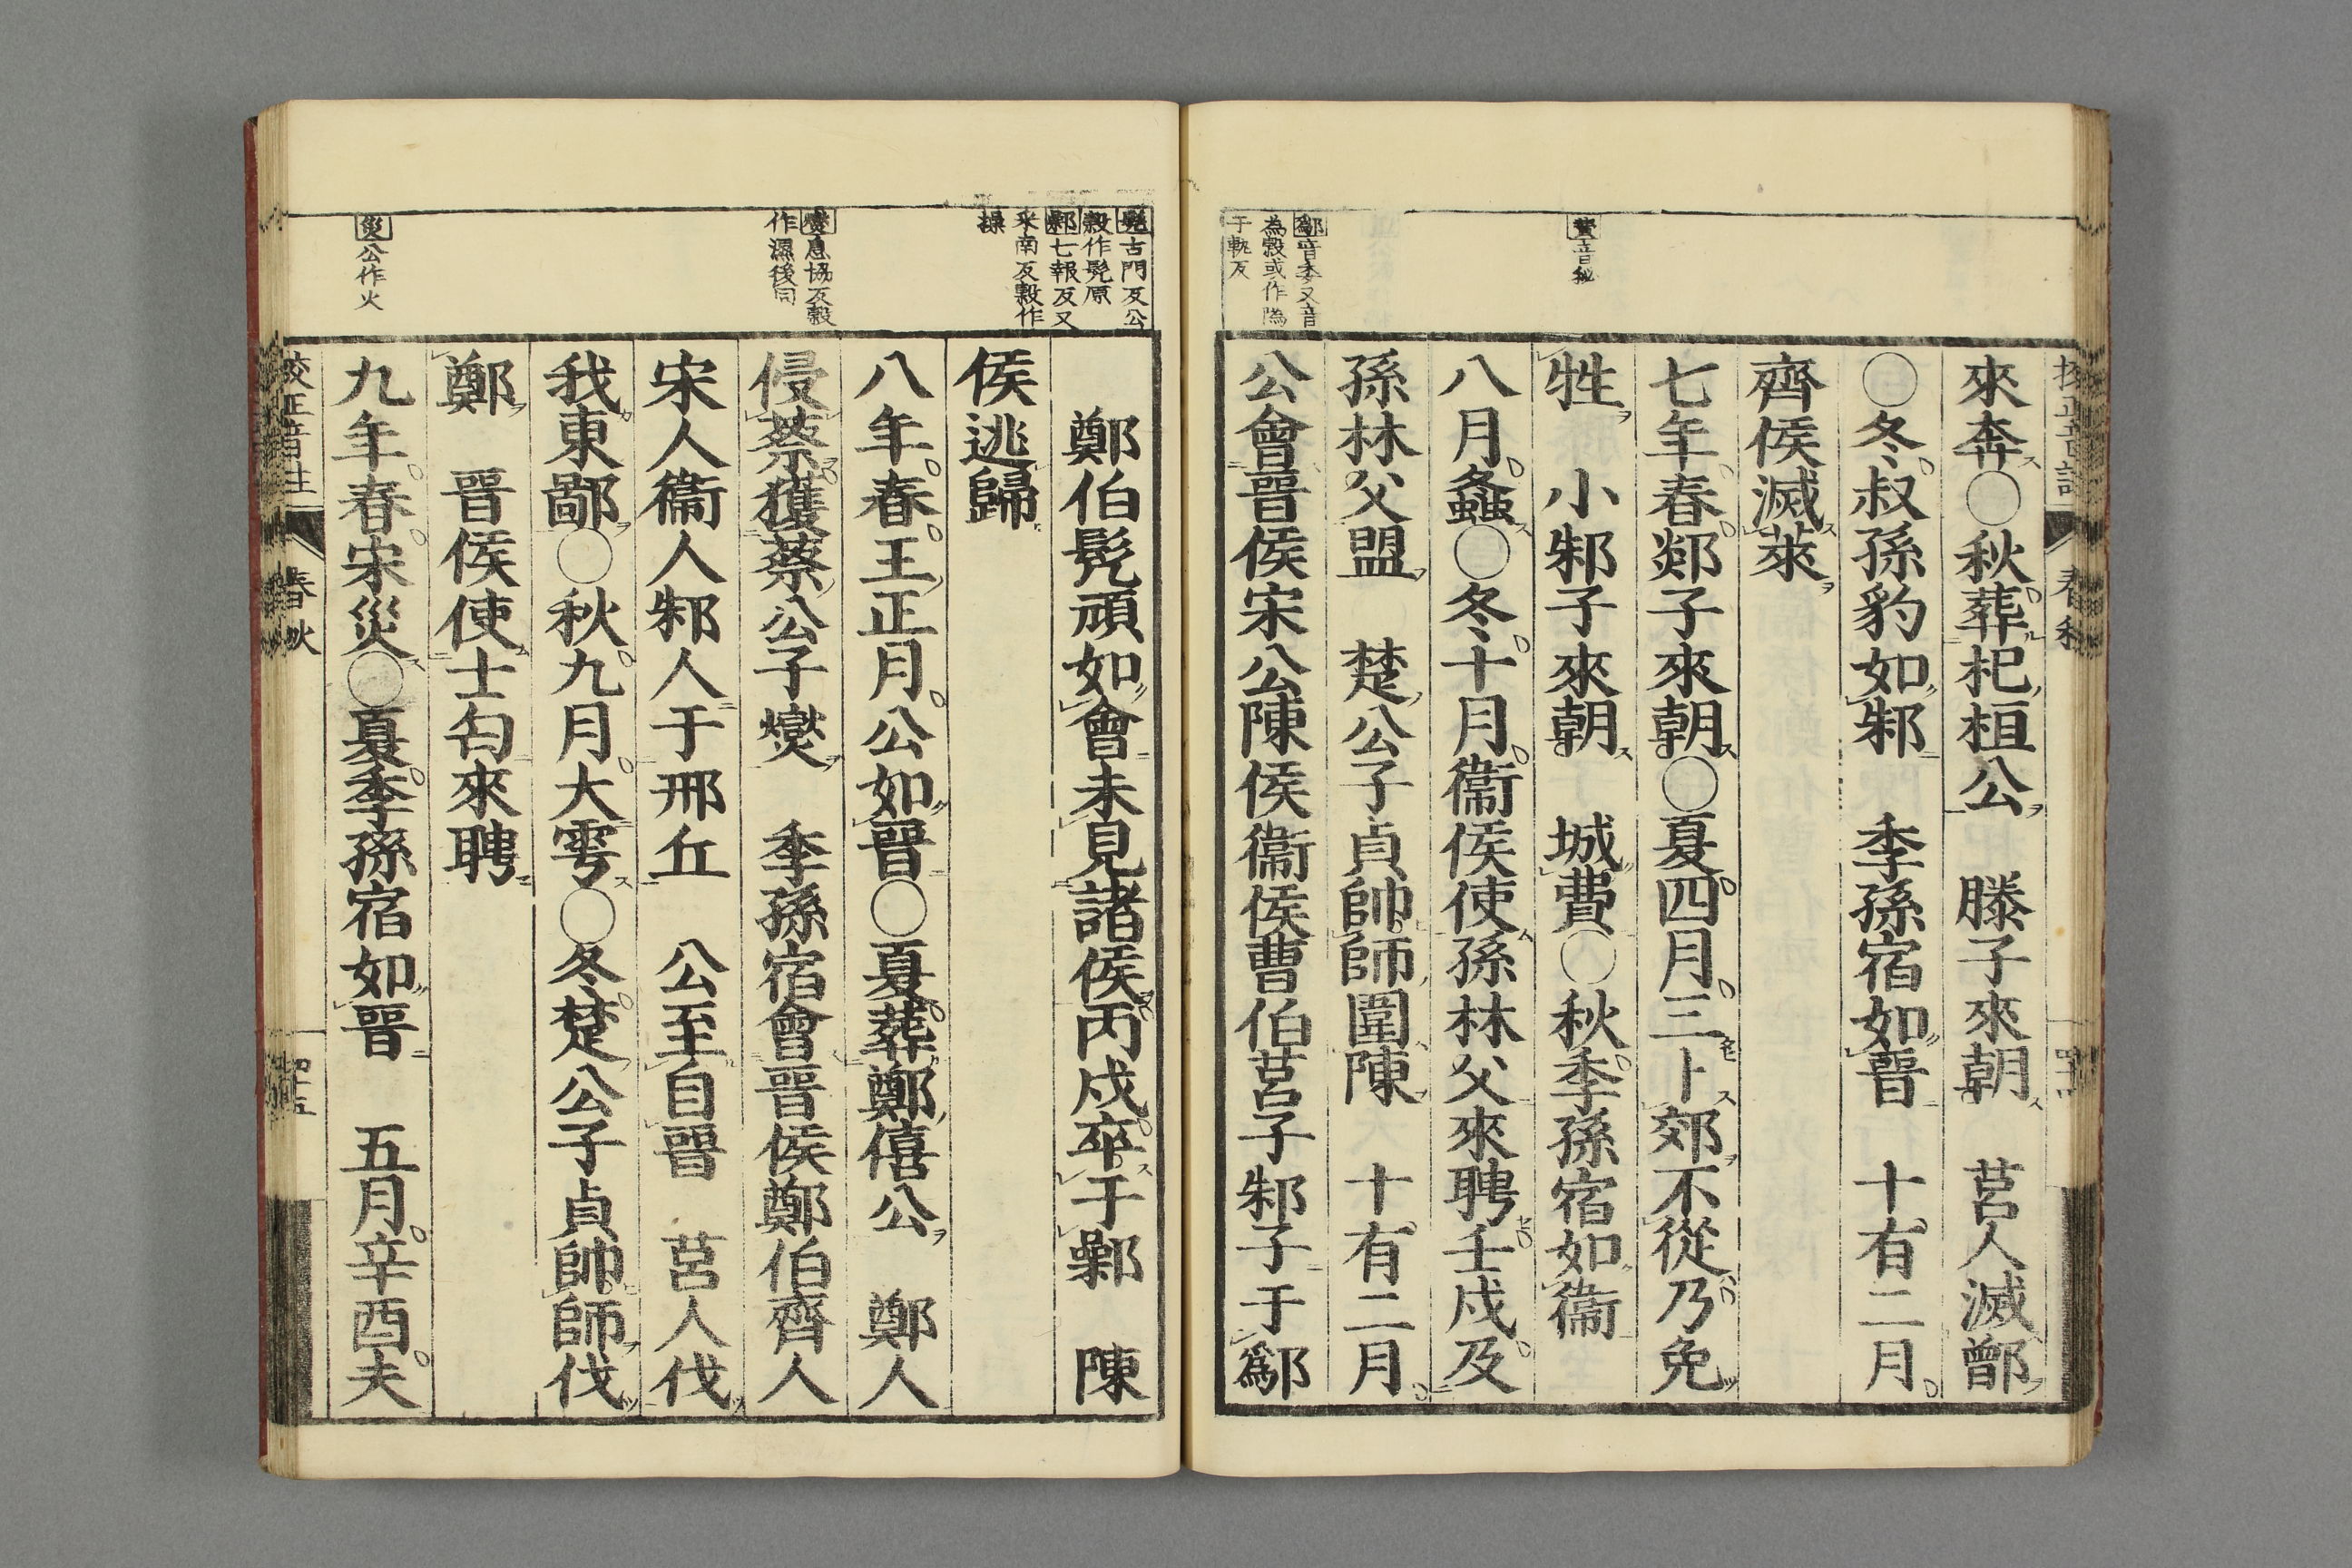 費音秘
鄬音委又音
為穀或作隔
于軌反
來奔○秋葬杞桓公　滕子來朝　莒人滅鄫
○冬叔孫豹如邾　季孫宿如晉　十有二月
齊侯滅萊
七年春郯子來朝○夏四月三卜郊不從乃免
牲　小邾子來朝　城費○秋季孫宿如衞
八月螽○冬十月衞侯使孫林父來聘壬戌及
孫林父盟　楚公子貞帥師圍陳　十有二月
公會晉侯宋公陳侯衞侯曹伯莒子邾子于鄬
髡古門反公
穀作髡原
鄵七報反又
采南反穀作
操
燮息協反穀
作濕後同
災公作火
鄭伯髡頑如會未見諸侯丙戌卒于鄵　陳
侯逃歸
八年春王正月公如晉○夏葬鄭僖公　鄭人
侵蔡獲蔡公子燮　季孫宿會晉侯鄭伯齊人
宋人衞人邾人于邢丘　公至自晉　莒人伐
我東鄙○秋九月大雩○冬楚公子貞帥師伐
鄭　晉侯使士匄來聘
九年春宋災○夏季孫宿如晉　五月辛酉夫
校正音註　春秋